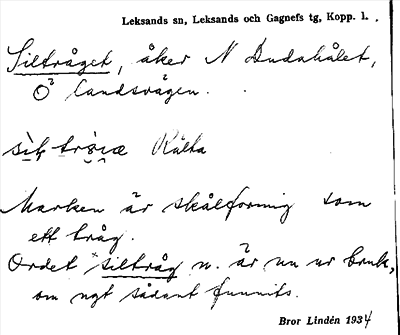 Leksands sn, Leksands och Gagnefs tg, Kopp. l.
Siltråget, åker N Dudahålet,
Ö landsvägen.
Kälta
Marken är skålformig som
ett tråg.
Ordet siltråg n. är nu ur bruk,
om ngt sådant funnits.
Bror Lindén 1934